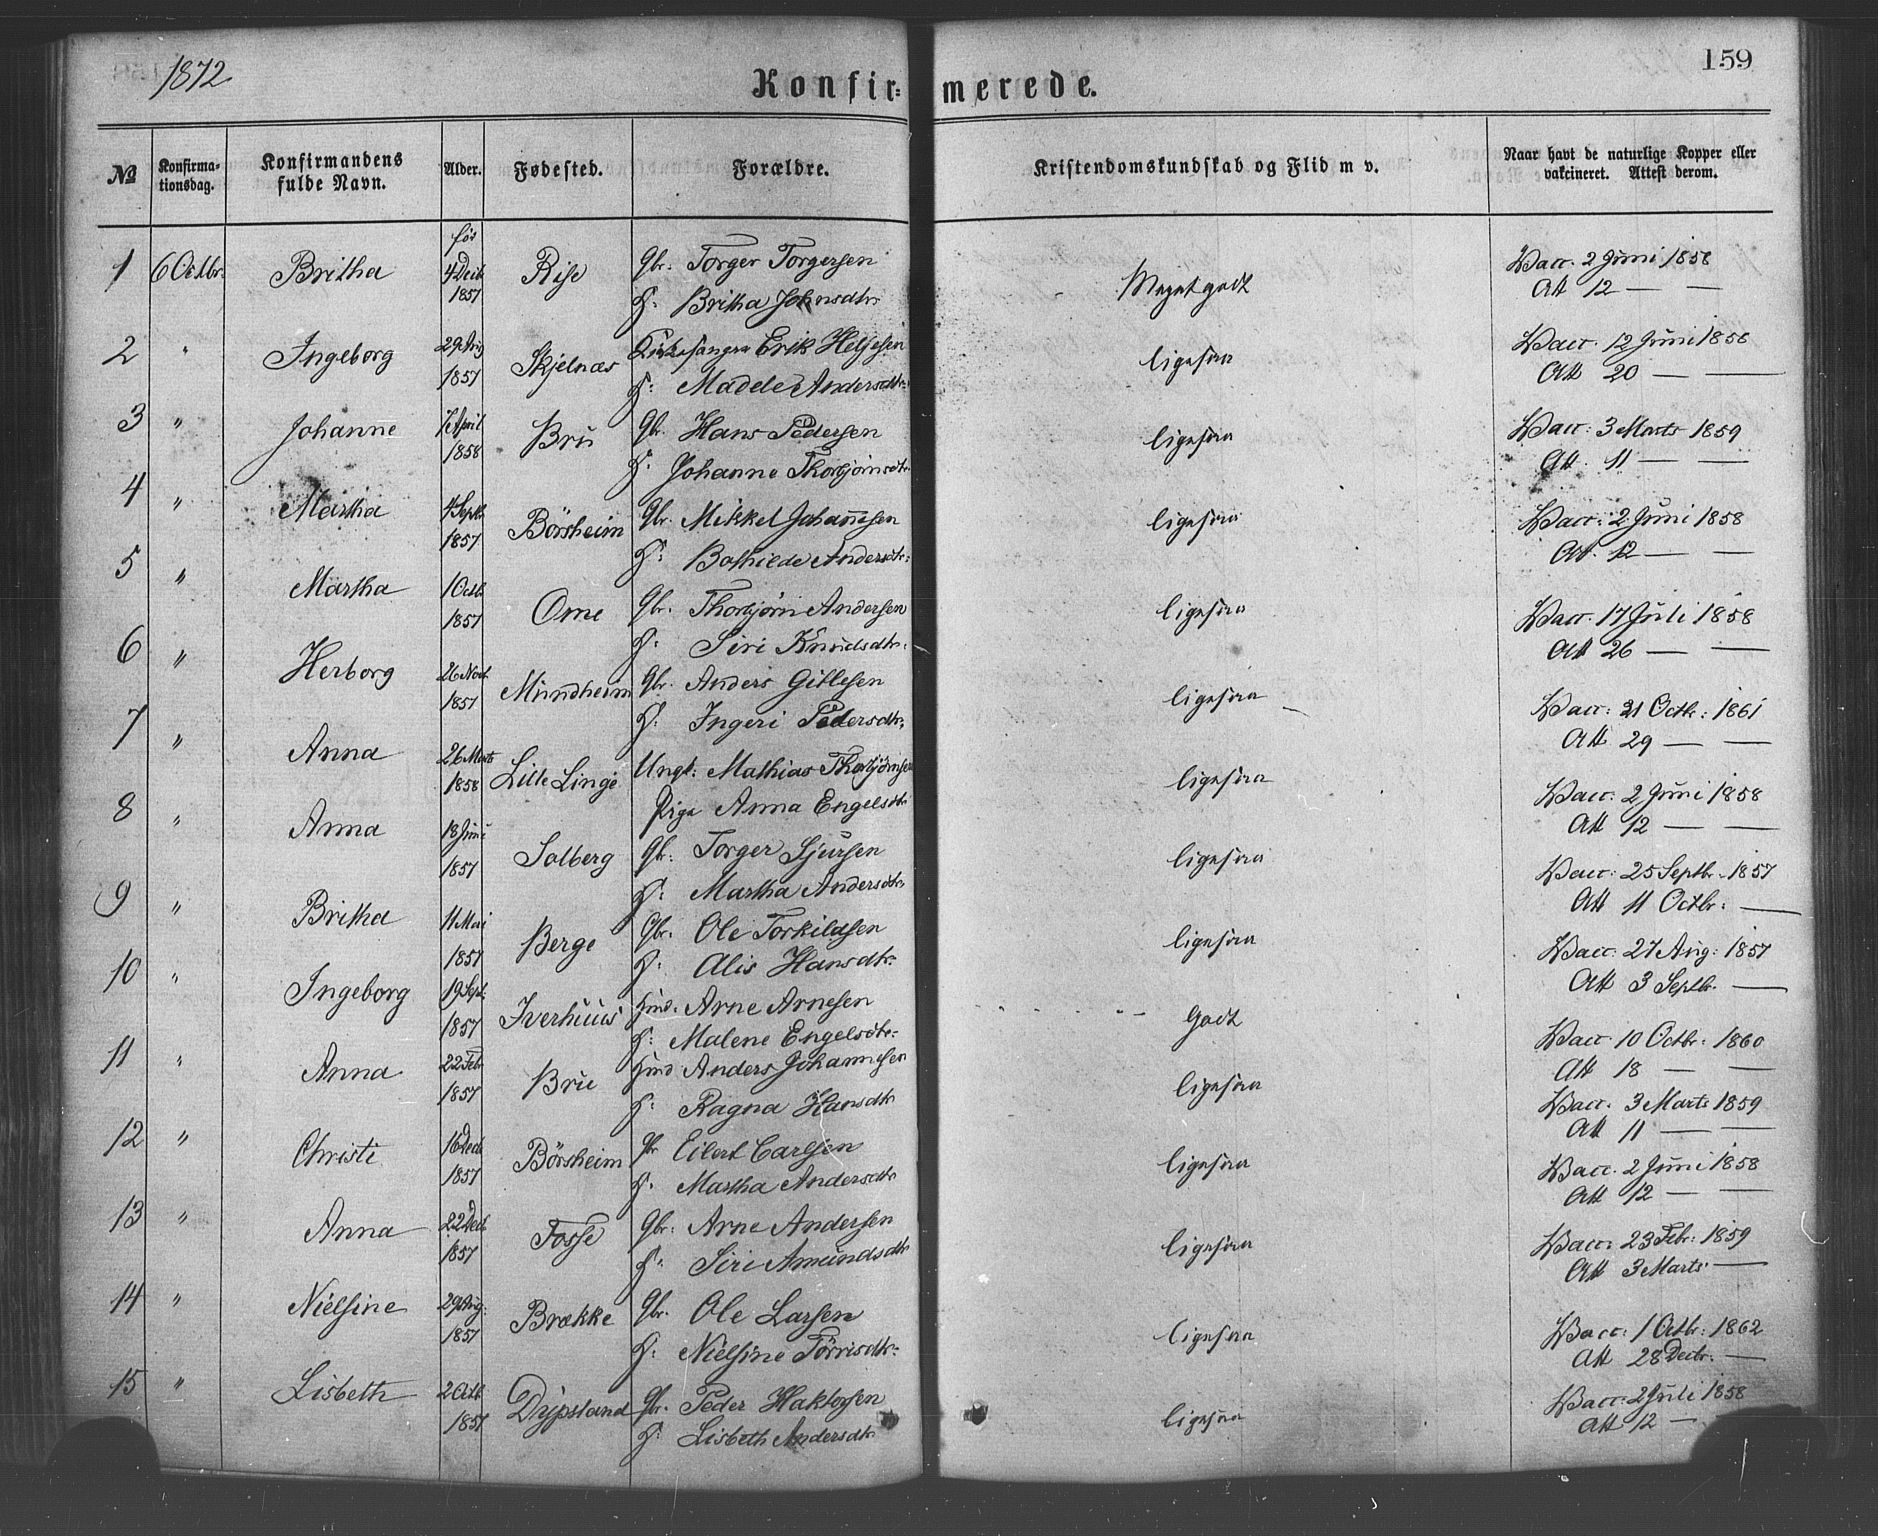 1872
Konfir= merede.
159
No
Konfirma-
tionsdag.
Konfirmandens
fulde Navn.
Alder.
Fødested.
Forældre.
Kristendomskundskab og Flid m v.
Naar havt de naturlige Kopper eller
vakcineret. Attest derom.
1 6 Octbr. Britha fös 4 Decb 1857 Rise Gbr: Torger Torgersen
H: Britha Johnsdtr
Meget godt
Vacc. 2 Juni 1858
Att 12 — —
2 " Ingeborg 29 Aug 1857 Skjelnæs Kirkesanger Erik Heljesen
H: Madele Andersdtr
ligesaa
Vacc. 12 Juni 1858
Att 20 — —
3 " Johanne 7 April 1858 Brú Gbr. Hans Pedersen
H: Johanne Thorbjörnsdtr
ligesaa
Vacc: 3 Marts 1859
Att. 11 — —
4 " Martha 4 Septb. 1857 Börsheim Gbr. Mikkel Johannesen
H: Bothilde Andersdtr:
ligesaa
Vacc: 2 Juni 1858
Att. 12 — —
5 " Martha 1 Octb. 1857 Ome Gbr. Thorbjörn Andersen
H: Siri Knudsdtr.
ligesaa
Vacc. 17 Juli 1858
Att 26 — —
6 " Herborg 26 Novb. 1857 Mundheim Gbr. Anders Gitlesen
H: Ingeri Pedersdtr.
ligesaa
Vacc: 21 Octbr: 1861
Att 29 — —
7 " Anna 26 Marts 1858 Lille Linge Ungk: Mathias Thorbjörnsen
Pige Anna Engelsdtr
ligesaa
Vacc: 2 Juni 1858
Att 12 — —
8 " Anna 18 Juni 1857 Solberg Gbr: Torger Sjursen
H: Martha Andersdtr.
ligesaa
Vacc: 25 Septbr. 1857
Att 11 Octbr: —
9 " Britha 11 Mai 1857 Berge Gbr. Ole Torkildsen
H: Alis Hansdtr.
ligesaa
Vacc. 27 Aug: 1857
Att 3 Septbr. —
10 " Ingeborg 19 Sept. 1857 Iverhuus Hmd. Arne Arnesen
H: Malene Engelsdtr:
Godt
Vacc. 10 Octbr: 1860
Att 18 — —
11 " Anna 22 Febr 1857 Brue Hmd Anders Johannesen
H: Ragna Hansdtr
ligesaa
Vacc. 3 Marts 1859
Att 11 — —
12 " Christi 16 Decb 1857 Börsheim Gbr Eilert Carlsen
H. Martha Andersdtr
ligesaa
Vacc. 2 Juni 1858
Att 12 — —
13 " Anna 22 Decb 1857 Fosse Gbr: Arne Andersen
H: Siri Amundsdtr
ligesaa
Vacc: 23 Febr: 1859
Att 3 Marts —
14 " Nielsine 29 Aug: 1857 Brække Gbr. Ole Larsen
H: Nielsine Törrisdtr:
ligesaa
Vacc: 1 Octbr: 1862
Att 28 Decbr. —
15 " Lisbeth 2 Octb 1857 Dripsland Gbr. Peder Haktorsen
H: Lisbeth Andersdtr
ligesaa
Vacc: 2 Juli 1858
Att 12 — —